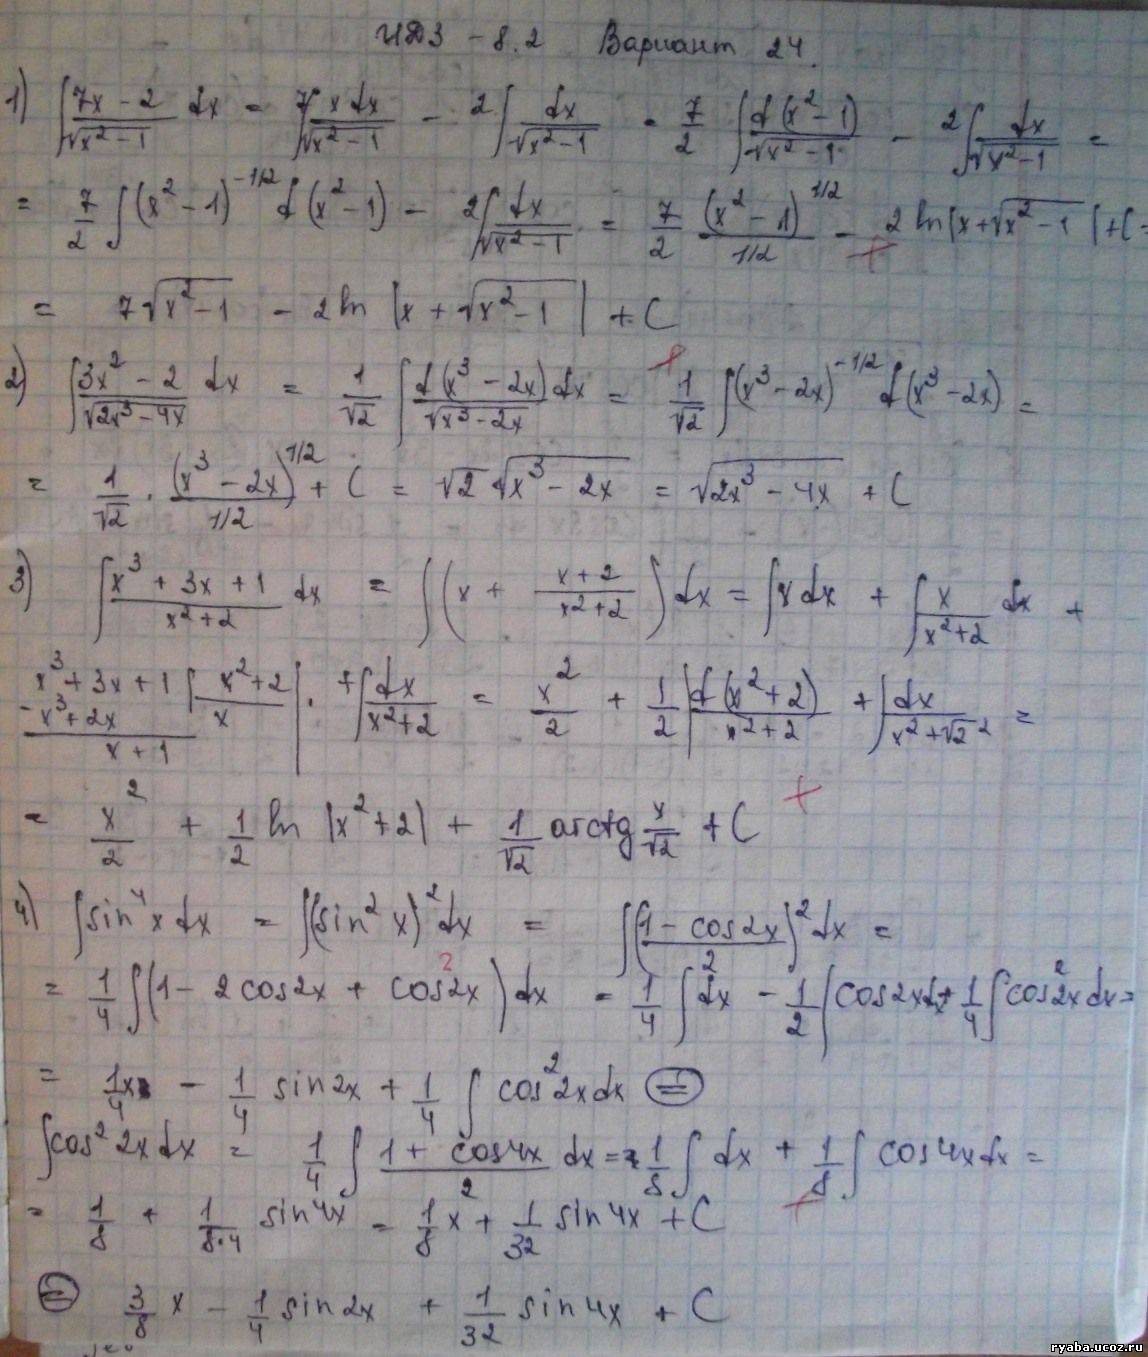 ИДЗ - 8.2 Вариант 24.
1) ∫ (7x - 2)/√(x² - 1) dx = 7∫ x dx/√(x² - 1) - 2∫ dx/√(x² - 1) = 7/2 ∫ d(x² - 1)/√(x² - 1) - 2∫ dx/√(x² - 1) =
= 7/2 ∫ (x² - 1)^(-1/2) d(x² - 1) - 2∫ dx/√(x² - 1) = 7/2 (x² - 1)^(1/2)/(1/2) - 2 ln|x + √(x² - 1)| + C =
= 7√(x² - 1) - 2 ln|x + √(x² - 1)| + C
2) ∫ (3x² - 2) dx/√(2x³ - 4x) = 1/√2 ∫ d(x³ - 2x) dx/√(x³ - 2x) = 1/√2 ∫ (x³ - 2x)^(-1/2) d(x³ - 2x) =
= 1/√2 · (x³ - 2x)^(1/2)/(1/2) + C = √2 √(x³ - 2x) = √(2x³ - 4x) + C
3) ∫ (x³ + 3x + 1)/(x² + 2) dx = ∫ (x + (x + 2)/(x² + 2)) dx = ∫ x dx + ∫ x/(x² + 2) dx +
x³ + 3x + 1 | x² + 2 | + ∫ dx/(x² + 2) = x²/2 + 1/2 ∫ d(x² + 2)/(x² + 2) + ∫ dx/(x² + √2²) =
- x³ + 2x | x
x + 1
= x²/2 + 1/2 ln|x² + 2| + 1/√2 arctg x/√2 + C
4) ∫ sin⁴x dx = ∫ (sin²x)² dx = ∫ ((1 - cos2x)/2)² dx =
= 1/4 ∫ (1 - 2cos2x + cos²2x) dx = 1/4 ∫ dx - 1/2 ∫ cos2x dx + 1/4 ∫ cos²2x dx =
= 1/4 x - 1/4 sin2x + 1/4 ∫ cos²2x dx ⊜
∫ cos²2x dx = 1/4 ∫ (1 + cos4x)/2 dx = 1/8 ∫ dx + 1/8 ∫ cos4x dx =
= 1/8 + 1/(8·4) sin4x = 1/8 x + 1/32 sin4x + C
⊜ 3/8 x - 1/4 sin2x + 1/32 sin4x + C
ryaba.ucoz.ru